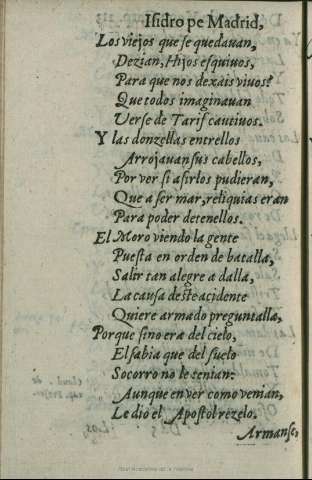 Isidro pe Madrid,
Los viejos que se quedauan,
Dezian, Hijos esquiuos,
Para que nos dexais viuos?
Que todos imaginauan
Verse de Tarif cautiuos.
Y las donzellas entrellos
Arrojauan sus cabellos,
Por ver si asirlos pudieran,
Que a ser mar, reliquias eran
Para poder detenellos.
El Moro viendo la gente
Puesta en orden de batalla,
Salir tan alegre a dalla,
La causa deste acidente
Quiere armado preguntalla,
Porque sino era del cielo,
El sabia que del suelo
Socorro no le tenian:
Aunque en ver como venian,
Le dio el Apostol rezelo.
Armanse,
Real Academia de la Historia